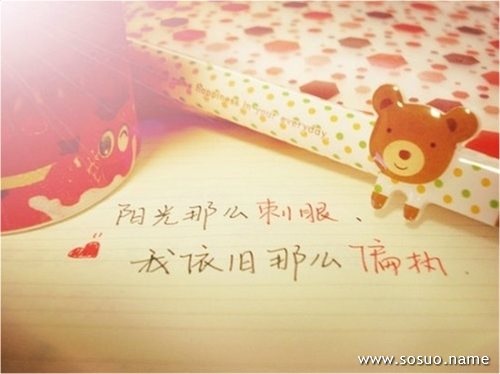 Happiness in your everyday
阳光那么刺眼、
我依旧那么偏执.
www.sosuo.name